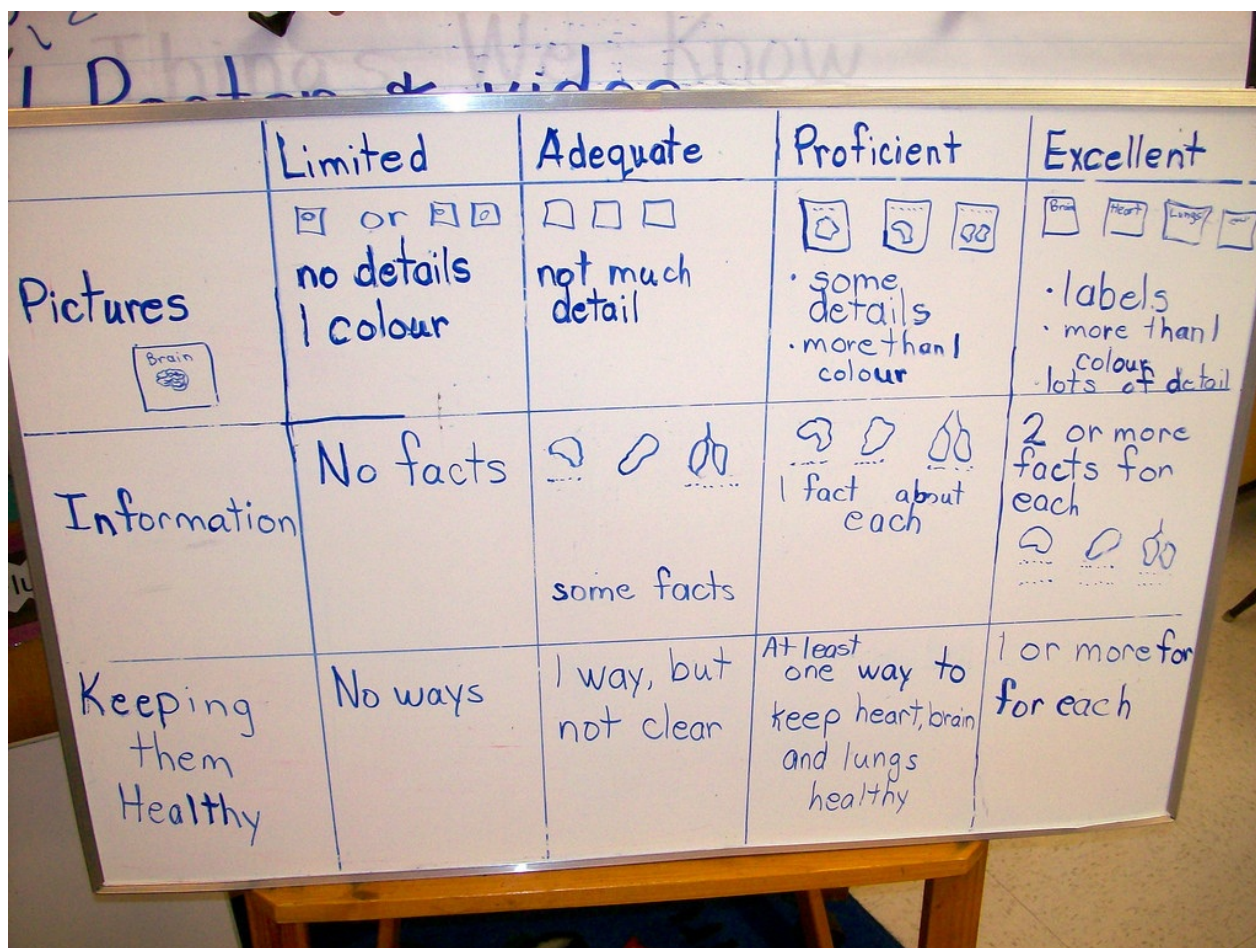 Things We Know
& video
Limited
Adequate
Proficient
Excellent
Pictures
Brain
or
no details
1 colour
not much
detail
• some
details
• more than 1
colour
Brain
Heart
Lungs
• labels
• more than 1
colour
• lots of detail
Information
No facts
some facts
1 fact about
each
2 or more
facts for
each
Keeping
them
Healthy
No ways
1 way, but
not clear
At least
one way to
keep heart, brain
and lungs
healthy
1 or more for
for each